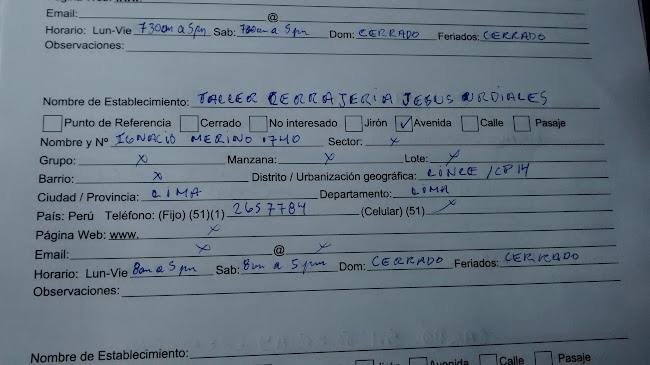 Email: @
Horario: Lun-Vie 730am a 5pm Sab: 730am a 5pm Dom: CERRADO Feriados: CERRADO
Observaciones:
Nombre de Establecimiento: TALLER CERRAJERIA JESUS URDIALES
Punto de Referencia Cerrado No interesado Jirón ✓ Avenida Calle Pasaje
Nombre y Nº IGNACIO MERINO 1740 Sector: x
Grupo: x Manzana: x Lote: x
Barrio: x Distrito / Urbanización geográfica: LINCE / CP14
Ciudad / Provincia: LIMA Departamento: LIMA
País: Perú Teléfono: (Fijo) (51)(1) 2657784 (Celular) (51) x
Página Web: www. x
Email: x @ x
Horario: Lun-Vie 8am a 5pm Sab: 8am a 5pm Dom: CERRADO Feriados: CERRADO
Observaciones:
Nombre de Establecimiento:
Avenida Calle Pasaje